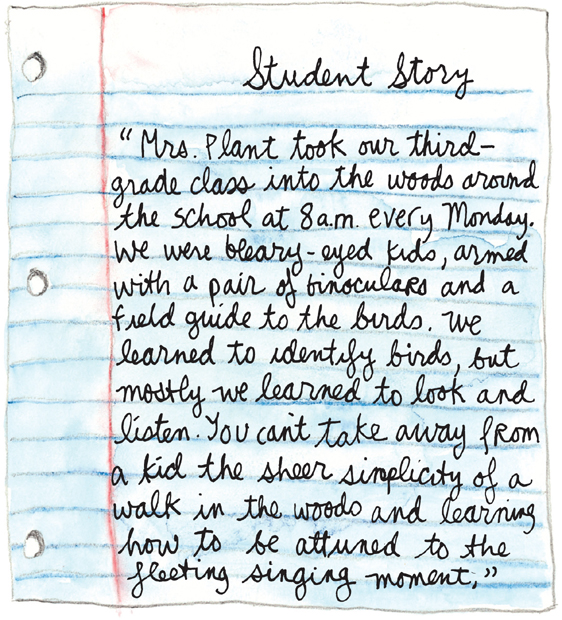 Student Story
“Mrs. Plant took our third-
grade class into the woods around
the school at 8 a.m. every Monday.
We were bleary-eyed kids, armed
with a pair of binoculars and a
field guide to the birds. We
learned to identify birds, but
mostly we learned to look and
listen. You can't take away from
a kid the sheer simplicity of a
walk in the woods and learning
how to be attuned to the
fleeting singing moment.”